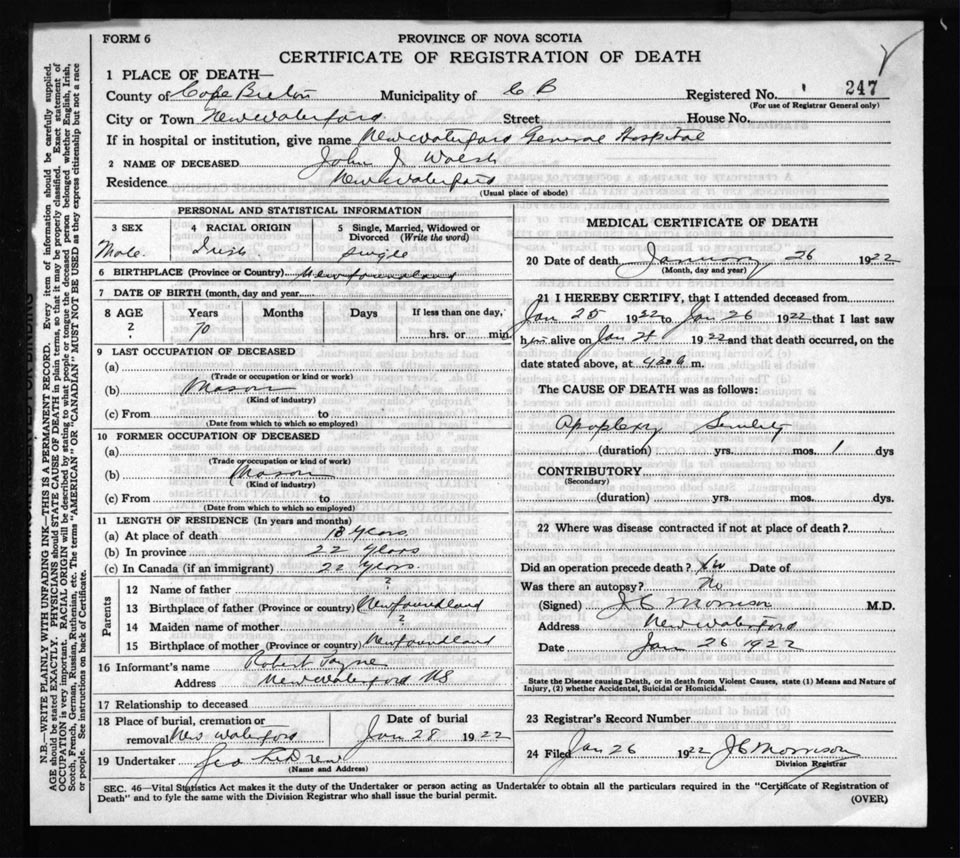 FORM 6
PROVINCE OF NOVA SCOTIA
CERTIFICATE OF REGISTRATION OF DEATH
1 PLACE OF DEATH—
County of Cape Breton Municipality of C B Registered No. 247
(For use of Registrar General only)
City or Town New Waterford Street House No.
If in hospital or institution, give name New Waterford General Hospital
2 NAME OF DECEASED John J Walsh
Residence New Waterford
(Usual place of abode)
PERSONAL AND STATISTICAL INFORMATION
3 SEX 4 RACIAL ORIGIN 5 Single, Married, Widowed or Divorced (Write the word)
Male. Irish Single
6 BIRTHPLACE (Province or Country) Newfoundland
7 DATE OF BIRTH (month, day and year)
8 AGE Years Months Days If less than one day,
? 70 hrs. or min.
9 LAST OCCUPATION OF DECEASED
(a)
(Trade or occupation or kind or work)
(b) Mason
(Kind of industry)
(c) From to
(Date from which to which so employed)
10 FORMER OCCUPATION OF DECEASED
(a)
(Trade or occupation or kind of work)
(b) Mason
(Kind of industry)
(c) From to
(Date from which to which so employed)
11 LENGTH OF RESIDENCE (In years and months)
(a) At place of death 18 years
(b) In province 22 years
(c) In Canada (if an immigrant) 22 years
Parents
12 Name of father ?
13 Birthplace of father (Province or country) Newfoundland
14 Maiden name of mother ?
15 Birthplace of mother (Province or country) Newfoundland
16 Informant's name Robert Payne
Address New Waterford NS
17 Relationship to deceased
18 Place of burial, cremation or Date of burial
removal New Waterford Jan 28 1922
19 Undertaker Geo
(Name and Address)
MEDICAL CERTIFICATE OF DEATH
20 Date of death January 26 1922
(Month, day and year)
21 I HEREBY CERTIFY, that I attended deceased from
Jan 25 1922 to Jan 26 1922 that I last saw
him alive on Jan 24 1922 and that death occurred, on
date stated above, at 4.30 a. m.
The CAUSE OF DEATH was as follows:
Apoplexy Senility
(duration) yrs. mos. 1 dys
CONTRIBUTORY
(Secondary)
(duration) yrs. mos. dys.
22 Where was disease contracted if not at place of death?
Did an operation precede death? No Date of
Was there an autopsy? No
(Signed) J C Morrison M.D.
Address New Waterford
Date Jan 26 1922
State the Disease causing Death, or in death from Violent Causes, state (1) Means and Nature of
Injury, (2) whether Accidental, Suicidal or Homicidal.
23 Registrar's Record Number
24 Filed Jan 26 1922 J C Morrison
Division Registrar
SEC. 46—Vital Statistics Act makes it the duty of the Undertaker or person acting as Undertaker to obtain all the particulars required in the "Certificate of Registration of
Death" and to fyle the same with the Division Registrar who shall issue the burial permit.
(OVER)
N.B.—WRITE PLAINLY WITH UNFADING INK—THIS IS A PERMANENT RECORD. Every item of information should be carefully supplied.
AGE should be stated EXACTLY. PHYSICIANS should STATE CAUSE OF DEATH in plain terms, so that it may be properly classified. Exact statement of
OCCUPATION is very important. RACIAL ORIGIN will be described by stating to what people or tongue the deceased person belonged whether English, Irish,
Scotch, French, German, Russian, Ruthenian, etc. The terms "AMERICAN" OR "CANADIAN" MUST NOT BE USED as they express citizenship but not a race
or people. See instructions on back of Certificate.